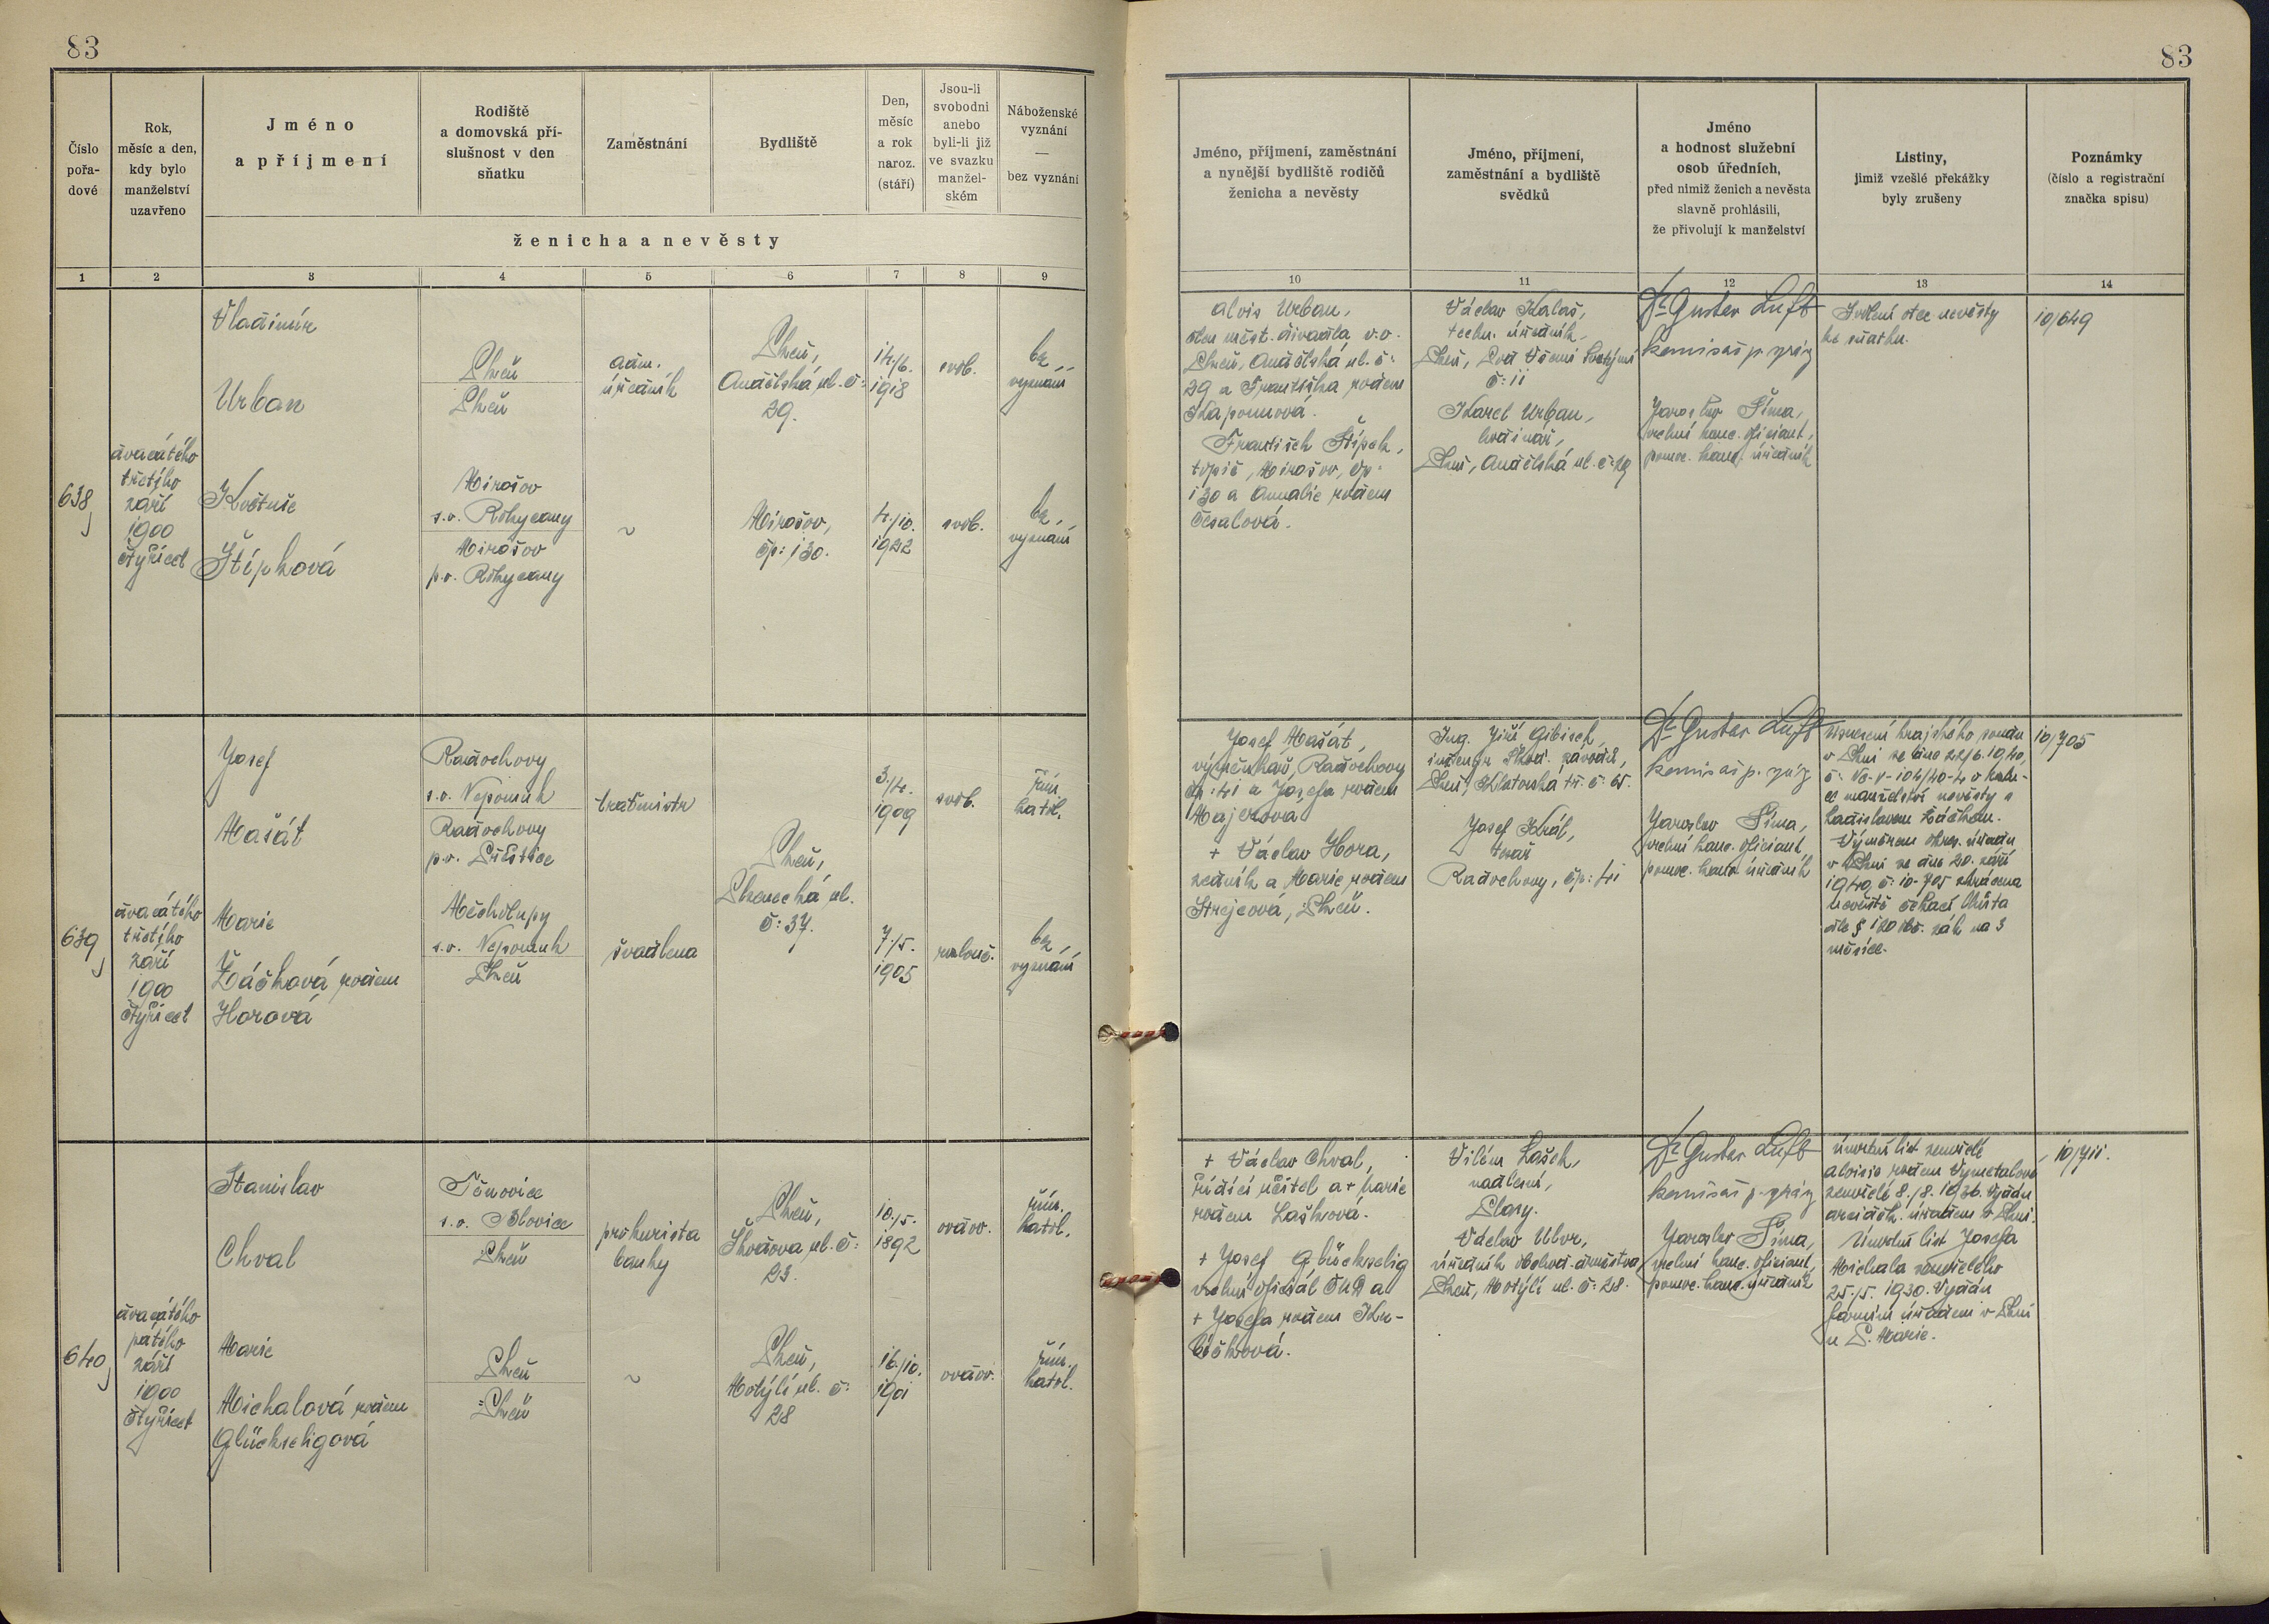 83
83
Číslo
pořa-
dové
Rok,
měsíc a den,
kdy bylo
manželství
uzavřeno
Jméno
a příjmení
Rodiště
a domovská pří-
slušnost v den
sňatku
Zaměstnání
Bydliště
Den,
měsíc
a rok
naroz.
(stáří)
Jsou-li
svobodni
anebo
byli-li již
ve svazku
manžel-
ském
Náboženské
vyznání
—
bez vyznání
ženicha a nevěsty
Jméno, příjmení, zaměstnání
a nynější bydliště rodičů
ženicha a nevěsty
Jméno, příjmení,
zaměstnání a bydliště
svědků
Jméno
a hodnost služební
osob úředních,
před nimiž ženich a nevěsta
slavně prohlásili,
že přivolují k manželství
Listiny,
jimiž vzešlé překážky
byly zrušeny
Poznámky
(číslo a registrační
značka spisu)
1 2 3 4 5 6 7 8 9
10 11 12 13 14
638
dvacátého
třetího
září
1900
čtyřicet
Vladimír
Urban
Plzeň
Plzeň
adm.
úředník
Plzeň,
Andělská ul. č:
29.
14./6.
1918
svob.
bez
vyznání
Květuše
Štípková
Mirošov
s.o. Rokycany
Mirošov
p.o. Rokycany
~
Mirošov,
čp: 130.
4./10.
1922
svob.
bez
vyznání
Alois Urban,
člen měst. divadla v.v.
Plzeň, Andělská ul. č:
29 a Františka rodem
Kaponnová.
František Štípek,
topič, Mirošov, čp:
130 a Amalie rodem
Česalová.
Václav Kalaš,
techn. úředník,
Plzeň, Pod Všemi Svatými
č: 11
Karel Urban,
hodinář,
Plzeň, Andělská ul. č: 29
Dr Gustav Luft
komisař p. správy
Jaroslav Šíma,
vrchní kanc. oficiant,
pomoc. kanc. úředník
Svolení otce nevěsty
ke sňatku.
10/649
639
dvacátého
třetího
září
1900
čtyřicet
Josef
Mašát
Radochovy
s.o. Nepomuk
Radochovy
p.o. Přeštice
traťmistr
Plzeň,
Plzenecká ul.
č: 37.
3./4.
1909
svob.
řím.
katol.
Marie
Žáčková rodem
Horová
Měcholupy
s.o. Nepomuk
Plzeň
švadlena
7./5.
1905
rozlouč.
bez
vyznání
Josef Mašát,
výměnkář, Radochovy
čp: 41 a Josefa rodem
Majerová
+ Václav Hora,
zedník a Marie rodem
Strejcová, Plzeň.
Ing. Jiří Gibisch,
inženýr Škod. závodů,
Plzeň, Klatovská tř. č: 65.
Josef Král,
tesař
Radochovy, čp: 41
Dr Gustav Luft
komisař p. správy
Jaroslav Šíma,
vrchní kanc. oficiant,
pomoc. kanc. úředník
Usnesení krajského soudu
v Plzni ze dne 22/6. 1940,
č: Nc-V-104/40-4 o rozlu-
ce manželství nevěsty s
Ladislavem Žáčkem.
Výměrem okres. úřadu
v Plzni ze dne 20. září
1940, č: 10-705 zkrácena
nevěstě čekací lhůta
dle § 120 obč. zák. na 3
měsíce.
10/705
640
dvacátého
pátého
září
1900
čtyřicet
Stanislav
Chval
s.o. Blovice
Plzeň
prokurista
banky
Plzeň,
Škodova ul. č:
23.
10./5.
1892
ovdov.
řím.
katol.
Marie
Michalová rodem
Glückseligová
Plzeň
Plzeň
~
Plzeň,
Motýlí ul. č:
28
16./10.
1901
ovdov.
řím.
katol.
+ Václav Chval,
řídící učitel a + Marie
rodem Laštková.
+ Josef Glückselig
vrchní oficiál ČSD a
+ Josefa rodem Ku-
bíčková.
Vilém Lašek,
nadlesní,
Plasy.
Václav Ulver,
úředník obchod. družstva,
Plzeň, Motýlí ul. č: 28.
Dr Gustav Luft
komisař p. správy
Jaroslav Šíma,
vrchní kanc. oficiant,
pomoc. kanc. úředník
Úmrtní list zemřelé
Aloisie rodem Vymetalové
zemřelé 8./8. 1936. Vydán
arciděk. úřadem v Plzni.
Úmrtní list Josefa
Michala zemřelého
25./5. 1930. Vydán
farním úřadem v Plzni
u P. Marie.
10/711.